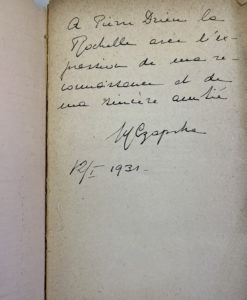 A Pierre Drieu la
Rochelle avec l'ex-
pression de ma re-
connaissance et de
ma sincère amitié
MCzapska
12/I 1931.